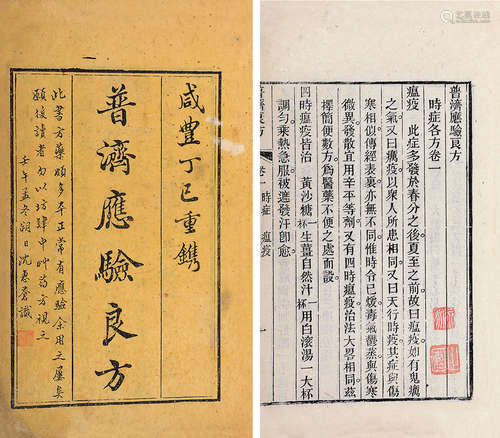 咸豐丁巳重鐫
普濟應驗良方
此書方藥頗多平正常有應驗余用之屢矣
願後讀者勿以坊肆中時方視之
壬午孟冬朔日沈
識
普濟應驗良方
時症各方卷一
瘟疫 此症多發於春分之後夏至之前故曰瘟疫如有鬼癘
之氣又曰癘疫以衆人所患相同又曰天行時疫其症與傷
寒相似傳經表裏亦無不同惟時令已煖毒氣鬱蒸與傷寒
微異發散宜用辛平等劑又有四時瘟疫治法大畧相同茲
擇簡便數方爲醫藥不便之處而設
四時瘟疫皆治 黃沙糖一杯 生薑自然汁一杯 用白滚湯一大杯
調勻乘熱急服被遮發汗卽愈
卷一 時症 瘟疫